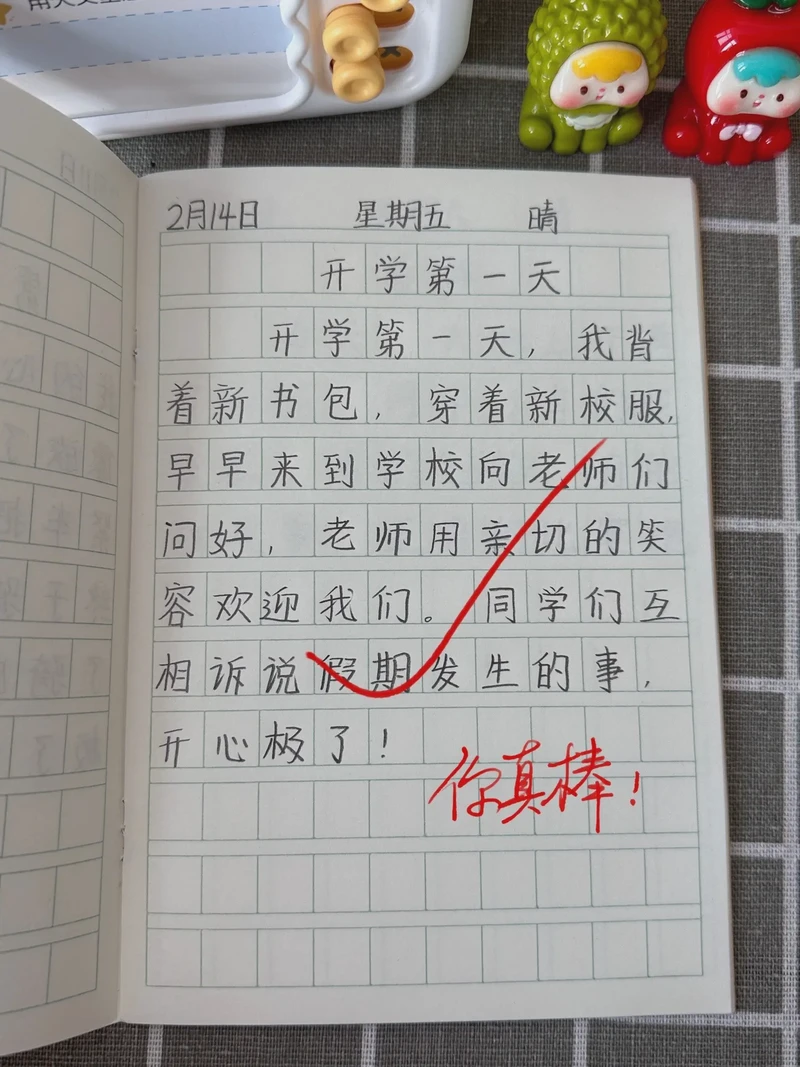 2月14日 星期五 晴
开学第一天
开学第一天，我背
着新书包，穿着新校服，
早早来到学校向老师们
问好，老师用亲切的笑
容欢迎我们。同学们互
相诉说假期发生的事，
开心极了！
你真棒！